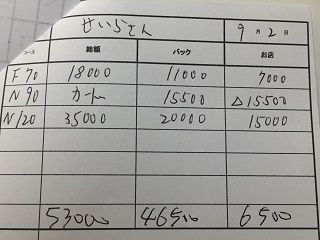 せいらさん 9月2日
コース 総額 バック お店
F70 18000 11000 7000
N90 カード 15500 △15500
N120 35000 20000 15000
53000 46500 6500